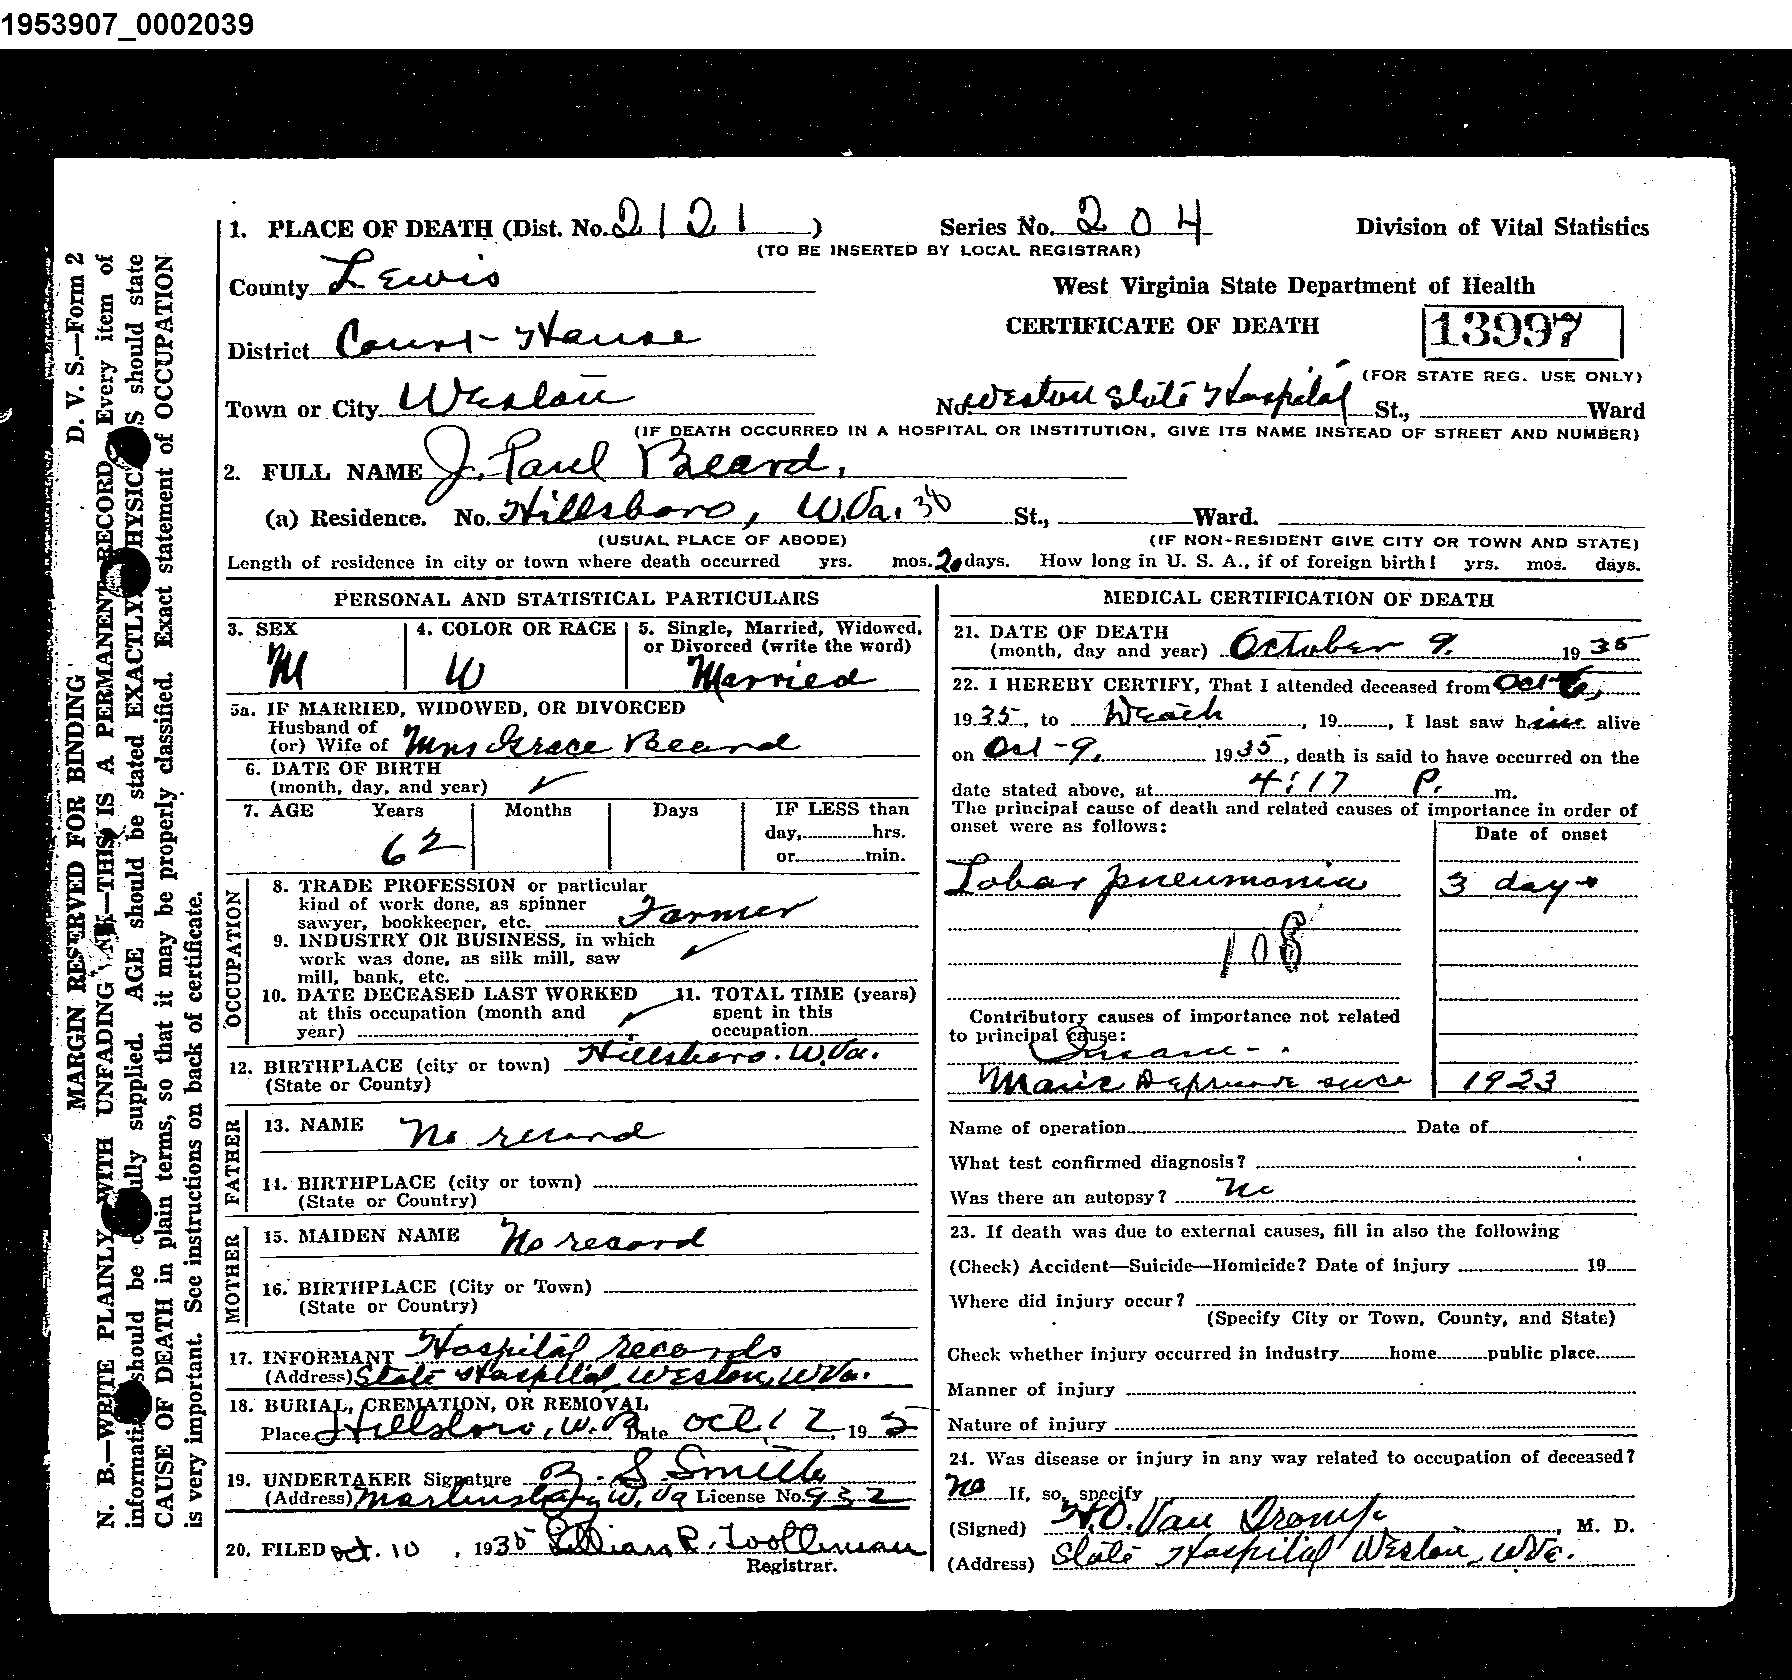 1953907_0002039
MARGIN RESERVED FOR BINDING D. V. S.—Form 2
N. B.—WRITE PLAINLY WITH UNFADING INK—THIS IS A PERMANENT RECORD. Every item of
information should be fully supplied. AGE should be stated EXACTLY. PHYSICIANS should state
CAUSE OF DEATH in plain terms, so that it may be properly classified. Exact statement of OCCUPATION
is very important. See instructions on back of certificate.
1. PLACE OF DEATH (Dist. No. 2121) Series No. 204 Division of Vital Statistics
(TO BE INSERTED BY LOCAL REGISTRAR)
County Lewis West Virginia State Department of Health
District Court-House CERTIFICATE OF DEATH 13997
(FOR STATE REG. USE ONLY)
Town or City Weston No. Weston State Hospital St., Ward
(IF DEATH OCCURRED IN A HOSPITAL OR INSTITUTION, GIVE ITS NAME INSTEAD OF STREET AND NUMBER)
2. FULL NAME J. Paul Beard.
(a) Residence. No. Hillsboro, W.Va. 38 St., Ward.
(USUAL PLACE OF ABODE) (IF NON-RESIDENT GIVE CITY OR TOWN AND STATE)
Length of residence in city or town where death occurred yrs. mos. 20 days. How long in U. S. A., if of foreign birth? yrs. mos. days.
PERSONAL AND STATISTICAL PARTICULARS
3. SEX 4. COLOR OR RACE 5. Single, Married, Widowed,
or Divorced (write the word)
M W Married
5a. IF MARRIED, WIDOWED, OR DIVORCED
Husband of
(or) Wife of Mrs Grace Beard
6. DATE OF BIRTH
(month, day, and year) ✓
7. AGE Years Months Days IF LESS than
day, hrs.
62 or min.
OCCUPATION
8. TRADE PROFESSION or particular
kind of work done, as spinner
sawyer, bookkeeper, etc. Farmer
9. INDUSTRY OR BUSINESS, in which
work was done, as silk mill, saw
mill, bank, etc. ✓
10. DATE DECEASED LAST WORKED 11. TOTAL TIME (years)
at this occupation (month and spent in this
year) ✓ occupation
12. BIRTHPLACE (city or town) Hillsboro. W.Va.
(State or County)
FATHER
13. NAME No record
14. BIRTHPLACE (city or town)
(State or Country)
MOTHER
15. MAIDEN NAME No record
16. BIRTHPLACE (City or Town)
(State or Country)
17. INFORMANT Hospital records
(Address) State Hospital, Weston, W.Va.
18. BURIAL, CREMATION, OR REMOVAL
Place Hillsboro, W.Va Date Oct. 12, 19 5
19. UNDERTAKER Signature B. S. Smith
(Address) W. Va License No. 932
20. FILED Oct. 10, 1935 Lillian R.
Registrar.
MEDICAL CERTIFICATION OF DEATH
21. DATE OF DEATH
(month, day and year) October 9, 1935
22. I HEREBY CERTIFY, That I attended deceased from Oct-6,
1935, to Death, 19 , I last saw him alive
on Oct-9, 1935, death is said to have occurred on the
date stated above, at 4:17 P. m.
The principal cause of death and related causes of importance in order of
onset were as follows: Date of onset
Lobar pneumonia 3 days
108
Contributory causes of importance not related
to principal cause:
Insane-
Manic Depressive since 1923
Name of operation Date of
What test confirmed diagnosis?
Was there an autopsy? No
23. If death was due to external causes, fill in also the following
(Check) Accident—Suicide—Homicide? Date of injury 19
Where did injury occur?
(Specify City or Town, County, and State)
Check whether injury occurred in industry home public place
Manner of injury
Nature of injury
24. Was disease or injury in any way related to occupation of deceased?
No If, so, specify
(Signed) H.O. Van Tromp, M. D.
(Address) State Hospital Weston, W.Va.